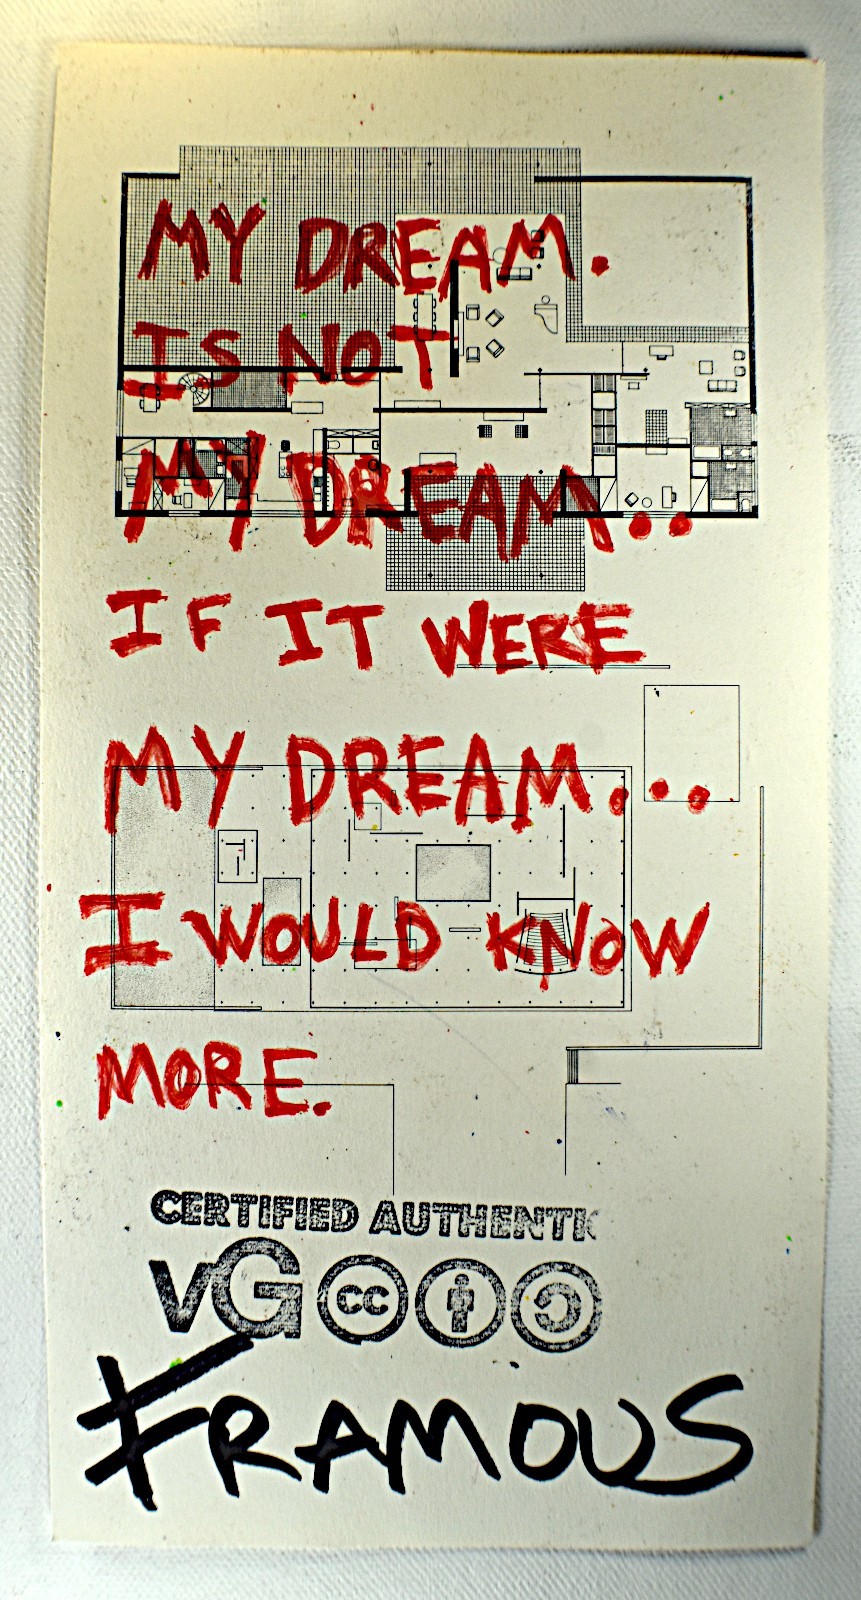 MY DREAM.
IS NOT
MY DREAM..
IF IT WERE
MY DREAM...
I WOULD KNOW
MORE.
CERTIFIED AUTHENTIC
vG cc
FRAMOUS